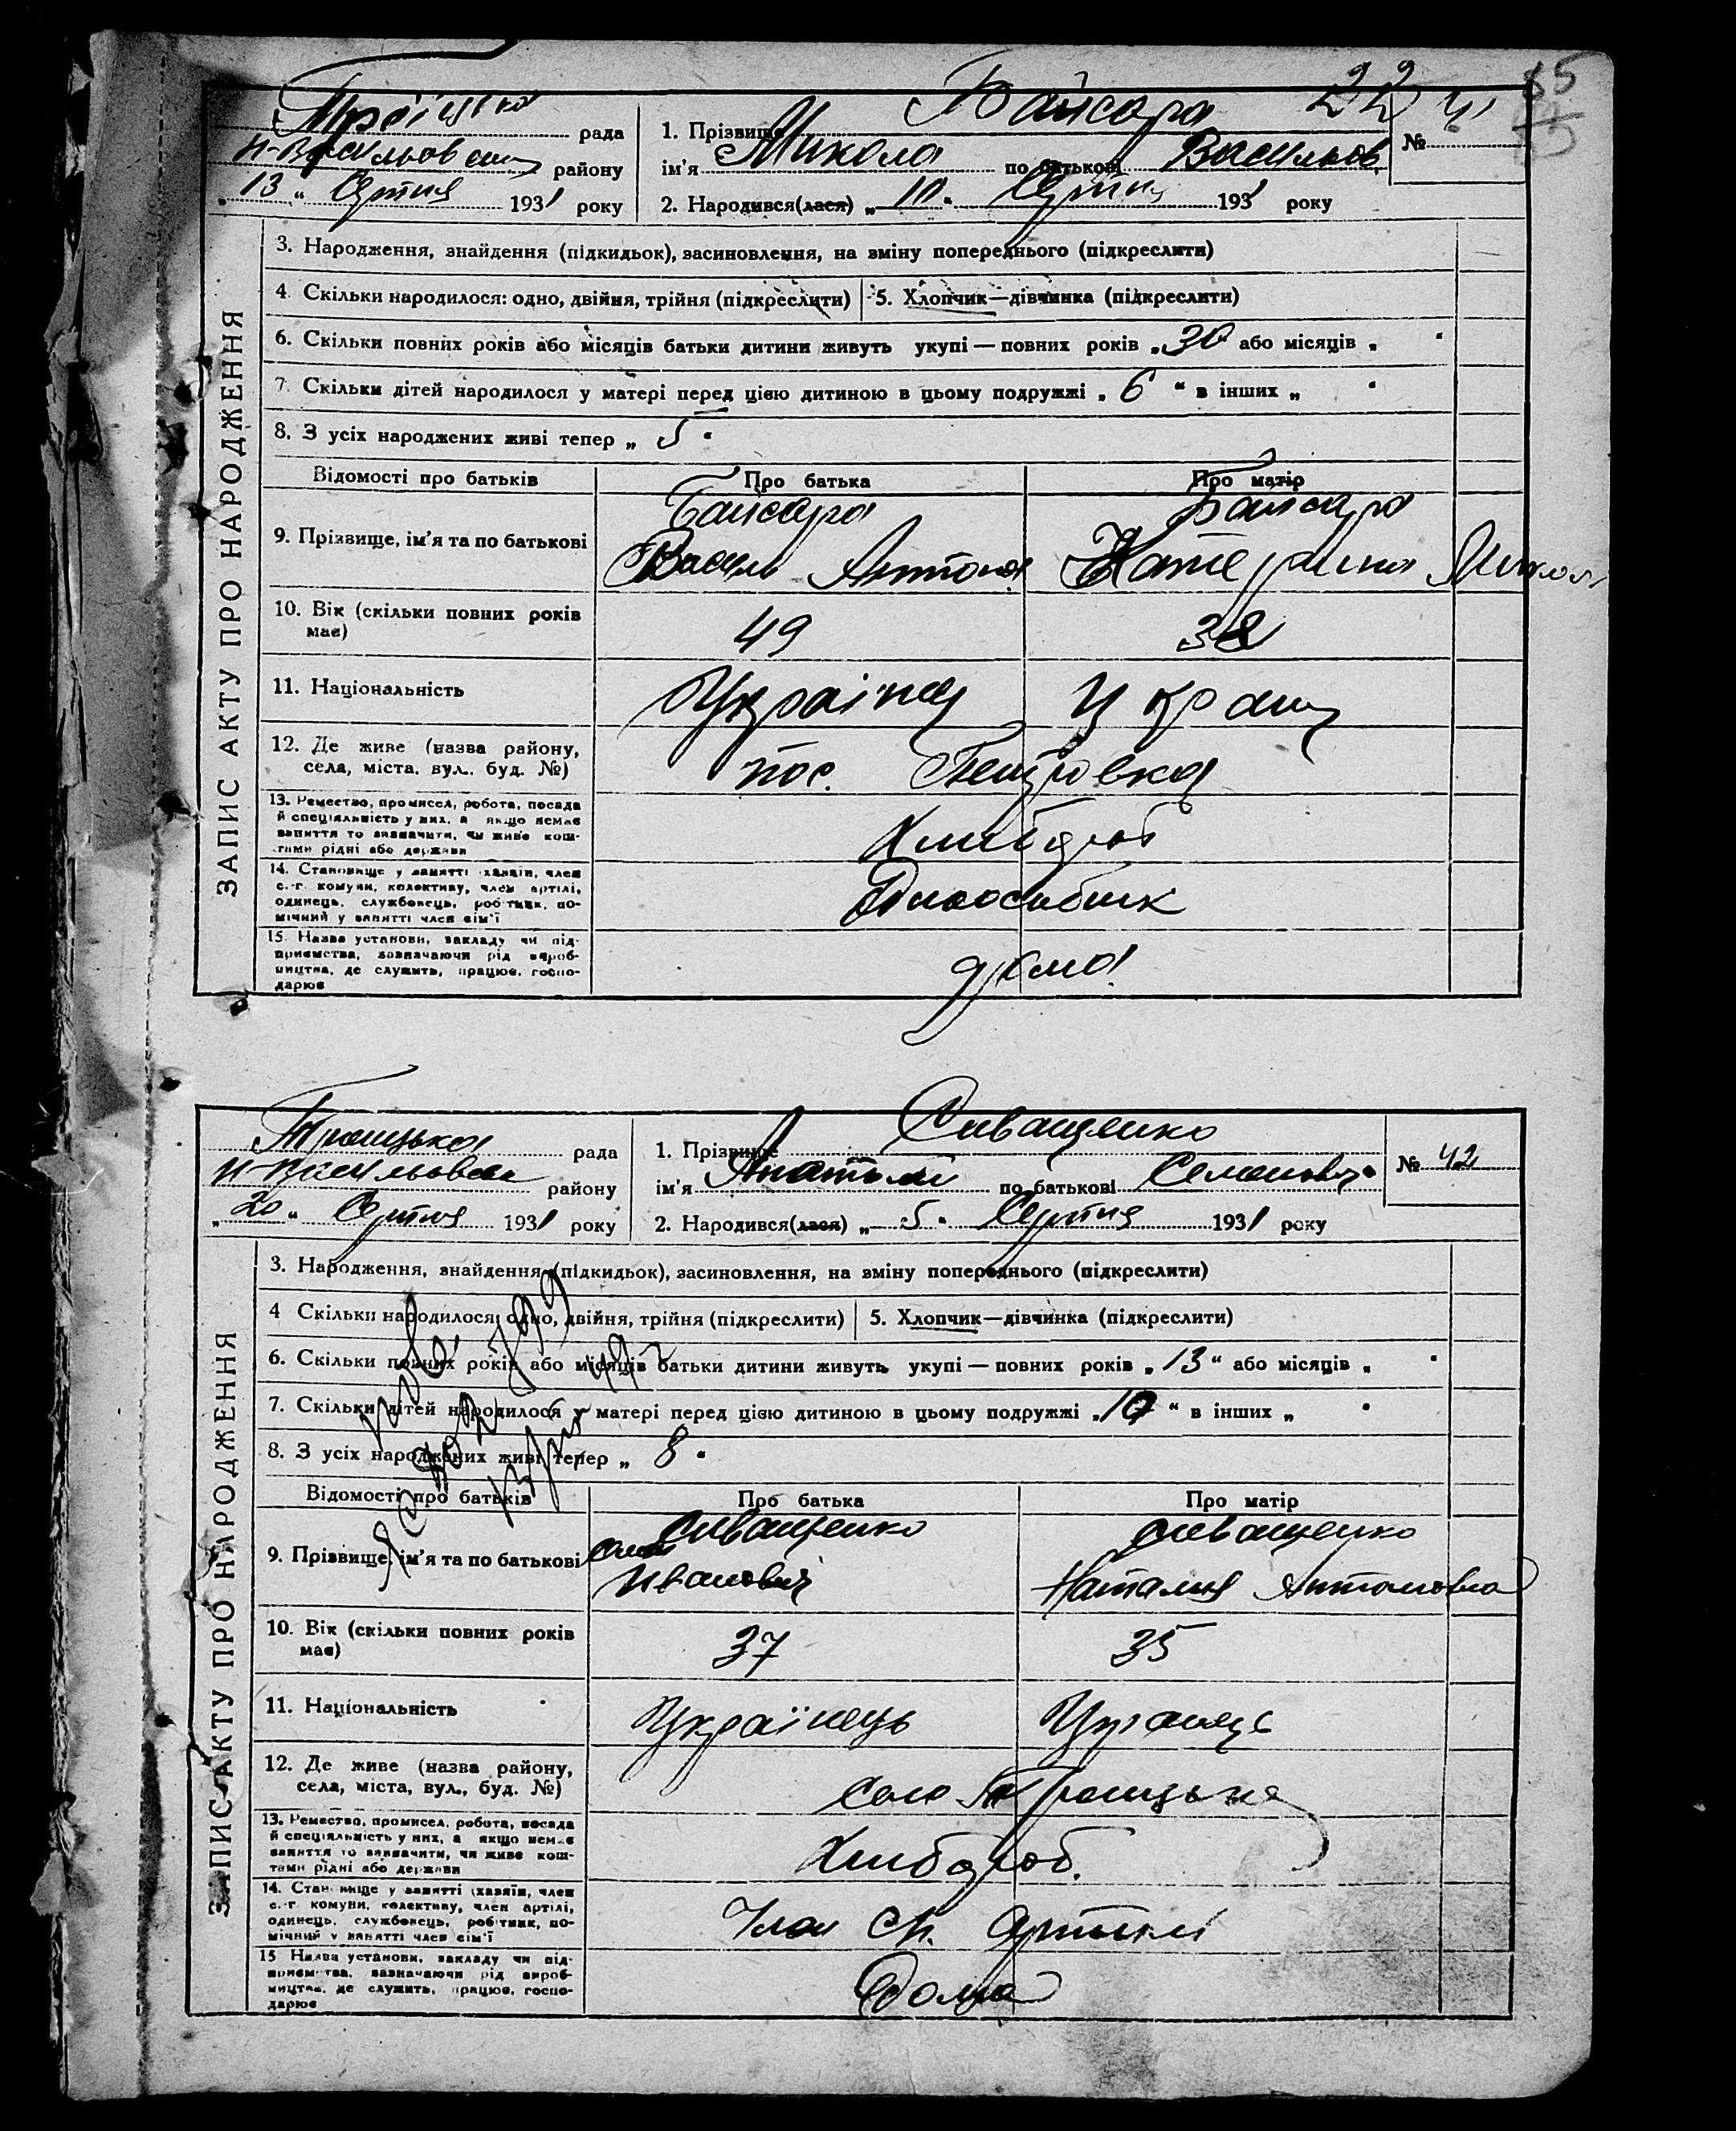 85
22
Троїцька рада
Н-Васильовськ району
"13" Серпня 1931 року
1. Прізвище Байсара
ім'я Микола по батькові Васильов
№ 41
2. Народився(лася) "10" Серпня 1931 року
ЗАПИС АКТУ ПРО НАРОДЖЕННЯ
3. Народження, знайдення (підкидьок), засиновлення, на зміну попереднього (підкреслити)
4. Скільки народилося: одно, двійня, трійня (підкреслити) 5. Хлопчик—дівчинка (підкреслити)
6. Скільки повних років або місяців батьки дитини живуть укупі — повних років "30 або місяців "
7. Скільки дітей народилося у матері перед цією дитиною в цьому подружжі "6" в інших "
8. З усіх народжених живі тепер " 5"
Відомості про батьків Про батька Про матір
9. Прізвище, ім'я та по батькові Байсара Байсара
Василь Антон Катерина Микол
10. Вік (скільки повних років має) 49 38
11. Національність Українец Украин
12. Де живе (назва району, села, міста, вул., буд. №) пос. Петровка
13. Ремество, промисел, робота, посада й спеціяльність у них, а якщо немає заняття то зазначити, чи живе коштами рідні або держави Хлибороб
14. Становище у занятті (хазяїн, член с.-г. комуни, колективу, член артілі, одинець, службовець, робітник, помічний у занятті член сім'ї
15. Назва установи, закладу чи підприємства, зазначаючи рід виробництва, де служить, працює, господарює дома
Троицька рада
Н-Васильовськ району
"20" Серпня 1931 року
1. Прізвище Сиващенко
ім'я Анатолий по батькові Семенович
№ 42
2. Народився(лася) "5" Серпня 1931 року
ЗАПИС АКТУ ПРО НАРОДЖЕННЯ
3. Народження, знайдення (підкидьок), засиновлення, на зміну попереднього (підкреслити)
4 Скільки народилося: одно, двійня, трійня (підкреслити) 5. Хлопчик—дівчинка (підкреслити)
6. Скільки повних років або місяців батьки дитини живуть укупі — повних років "13" або місяців "
7. Скільки дітей народилося у матері перед цією дитиною в цьому подружжі "10" в інших "
8. З усіх народжених живі тепер " 8"
Відомості про батьків Про батька Про матір
9. Прізвище, ім'я та по батькові Сиващенко Сиващенко
Иванович Наталия Антоновна
10. Вік (скільки повних років має) 37 35
11. Національність Українець
12. Де живе (назва району, села, міста, вул., буд. №) село Троицьке
13. Ремество, промисел, робота, посада й спеціяльність у них, а якщо немає заняття то зазначити, чи живе коштами рідні або держави Хлибороб.
14. Становище у занятті (хазяїн, член с.-г. комуни, колективу, член артілі, одинець, службовець, робітник, помічний у занятті член сім'ї Член сх. Артили
15 Назва установи, закладу чи підприємства, зазначаючи рід виробництва, де служить, працює, господарює Дома